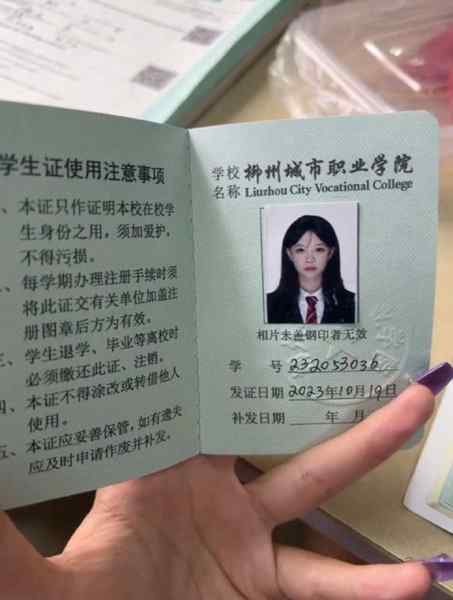 学生证使用注意事项
、本证只作证明本校在校学
生身份之用，须加爱护，
不得污损。
、每学期办理注册手续时须
将此证交有关单位加盖注
册图章后方为有效。
三、学生退学、毕业等离校时
必须缴还此证、注销。
四、本证不得涂改或转借他人
使用。
五、本证应妥善保管，如有遗失
应及时申请作废并补发。
学校 柳州城市职业学院
名称 Liuzhou City Vocational College
相片未盖钢印者无效
学 号 232053036
发证日期 2023年10月19日
补发日期 年 月